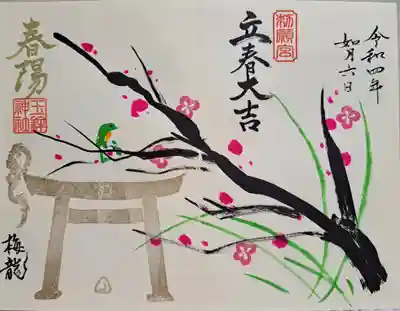 令和四年
如月六日
勅願宮
立春大吉
春陽
玉置
神社
梅龍